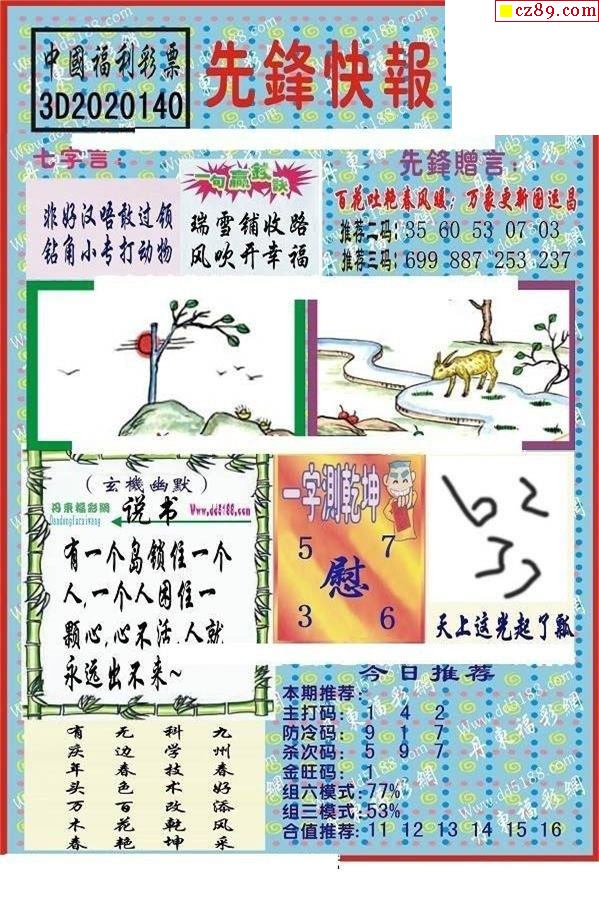 cz89.com
中國福利彩票
3D2020140
先鋒快報
七字言：
非好汉唔敢过领
钻角小专打动物
一句赢錢訣
瑞雪铺收路
风吹开幸福
先鋒贈言：
百花吐艳春风暖；万象更新国运昌
推荐二码：35 60 53 07 03
推荐三码：699 887 253 237
（玄機幽默）
丹東福彩網
Dandongfucaiwang
说书
Www.dd5188.com
有一个岛锁住一个
人,一个人困住一
颗心,心不活,人就
永远出不来~
一字測乾坤
5 7
慰
3 6
天上这光起了瓢
今日推荐
本期推荐：
主打码：1 4 2
防冷码：9 1 7
杀次码：5 9 7
金旺码：1
组六模式：77%
组三模式：53%
合值推荐：11 12 13 14 15 16
九州春好添风采
科学技术改乾坤
无边春色百花艳
有庆年头万木春